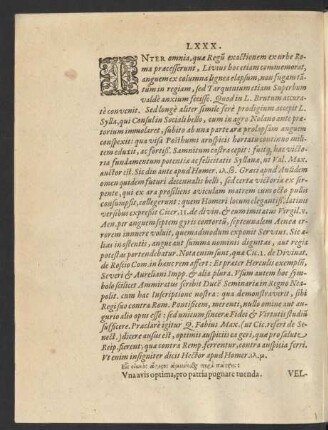 LXXX.
INTER omnia, quæ Regũ exactionem ex urbe Ro-
ma præcesserunt, Livius hoc etiam commemorat,
anguem ex columna lignea elapsum, non fugam tã-
tùm in regiam, sed Tarquinium etiam Superbum
valdè anxium fecisse. Quod in L. Brutum accura-
tè convenit. Sed longè aliter simile ferè prodigium accepit L.
Sylla, qui Consul in Sociali bello, cum in agro Nolano ante præ-
torium immolaret, subito ab una parte aræ prolapsum anguem
conspexit: qua visa Posthumi aruspicis hortatu continuò mi-
litem eduxit, ac fortiss. Samnitium castra cepit: fuitq; hæc victo-
ria fundamentum potentiæ ac felicitatis Syllanæ, ut Val. Max.
auctor est. Sic diu ante apud Homer. Græci apud Aulidem
omen quidem futuri decennalis belli, sed certæ victoriæ ex ser-
pente, qui ex ara prosiliens aviculam matrem cum octo pullis
consumpsit, collegerunt: quem Homeri locum elegantiss. latinis
versibus expressit Cicer. 11. de divin. & eum imitatus Virgil. v.
Aen. per anguem septem gyris contortũ, septennalem Aeneæ er-
rorem innuere voluit, quemadmodum exponit Servius. Sic a-
lias in sentent. angue aut summa hominis dignitas, aut regia
potestas portendebatur. Nota enim sunt, quæ Cic. 1. de Divinat.
de Roscio Com. in hanc rem affert. Et præter Herculis exempla,
Severi & Aureliani Impp. & alia plura. Usum autem hoc sym-
bolo scilicet Ammiratus scribit Ducẽ Seminariæ in Regno Nea-
polit. cum hac Inscriptione
Regi suo contra Rom. Pontificem, merenti, nullo omine aut au-
gurio alio opus esse: sed unicuique subditi Fidei & Virtutis studiũ
sufficere. Præclarè igitur Q. Fabius Max. (ut Cic. refert de Se-
nect.) dicere ausus est, optimis auspiciis ea geri, quæ pro salute
Reip. fierent: quæ contra Remp. ferrentur, contra auspicia ferri.
Ut enim insigniter dicit Hector apud Homer.
Una avis optima, pro patria pugnare tuenda.
VEL-